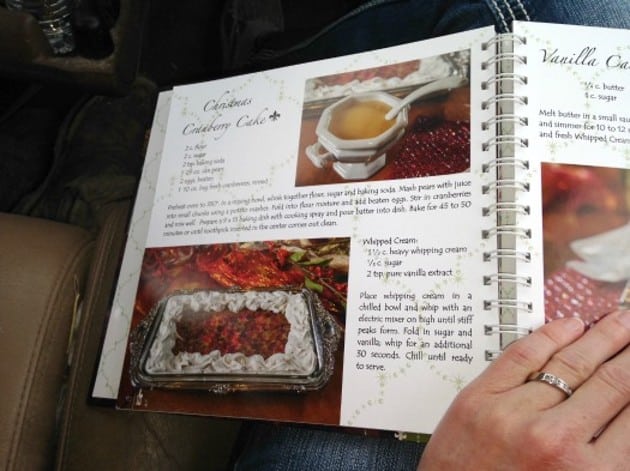 Christmas
Cranberry Cake
2 c. flour
2 c. sugar
2 tsp. baking soda
1 29 oz. can pears
2 eggs, beaten
1 12 oz. bag fresh cranberries, rinsed
Preheat oven to 350°. In a mixing bowl, whisk together flour, sugar and baking soda. Mash pears with juice
into small chunks using a potato masher. Fold into flour mixture and add beaten eggs. Stir in cranberries
and mix well. Prepare a 9 x 13 baking dish with cooking spray and pour batter into dish. Bake for 45 to 50
minutes or until toothpick inserted in the center comes out clean.
Whipped Cream:
1 1/2 c. heavy whipping cream
1/3 c. sugar
2 tsp. pure vanilla extract
Place whipping cream in a
chilled bowl and whip with an
electric mixer on high until stiff
peaks form. Fold in sugar and
vanilla; whip for an additional
30 seconds. Chill until ready
to serve.
Vanilla
c. butter
c. sugar
Melt butter in a small
and simmer for 10 to 12
and fresh Whipped